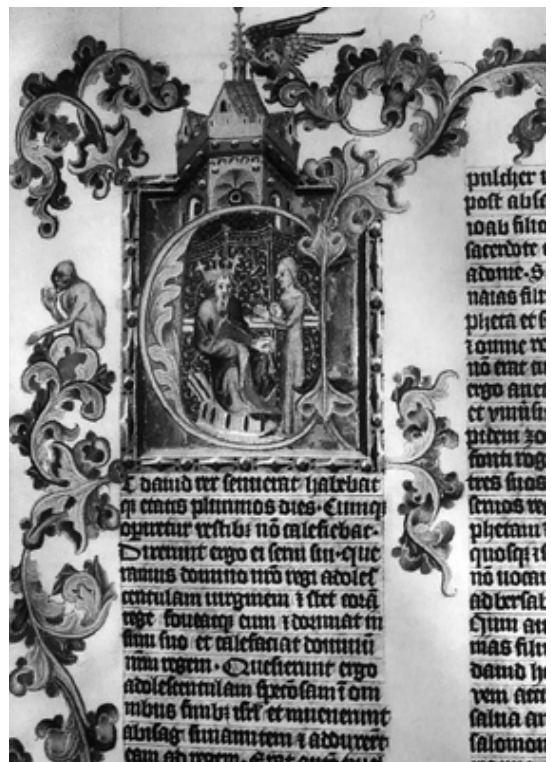 E
T dauid rex senuerat habebat
qʒ etatis plurimos dies · Cumqʒ
opiretur vestibʒ nō calefiebat ·
Dixerunt ergo ei serui sui · que
ramus domino nrō regi adoles
centulam uirginem ⁊ stet corā
rege foueatqʒ eum ⁊ dormiat in
sinu suo et calefaciat dominū
nrm̄ regem · Quesierunt ergo
adolescentulam speciosam ī om
nibus finibʒ isrl̄ et inuenerunt
abisag sunamitem ⁊ adduxerūt
eam ad regem · Erat
pulcher
post
ioab filio
sacerdote
adonie · S
naias fili
pheta et
⁊ omne ro
nō erat
ergo
et
pidem zo
fonti rog
tres suos
seruos reg
phetam
quosqʒ
nō uocau
ad bersab
Qum au
mas filiu
dauid
salua an
salomon